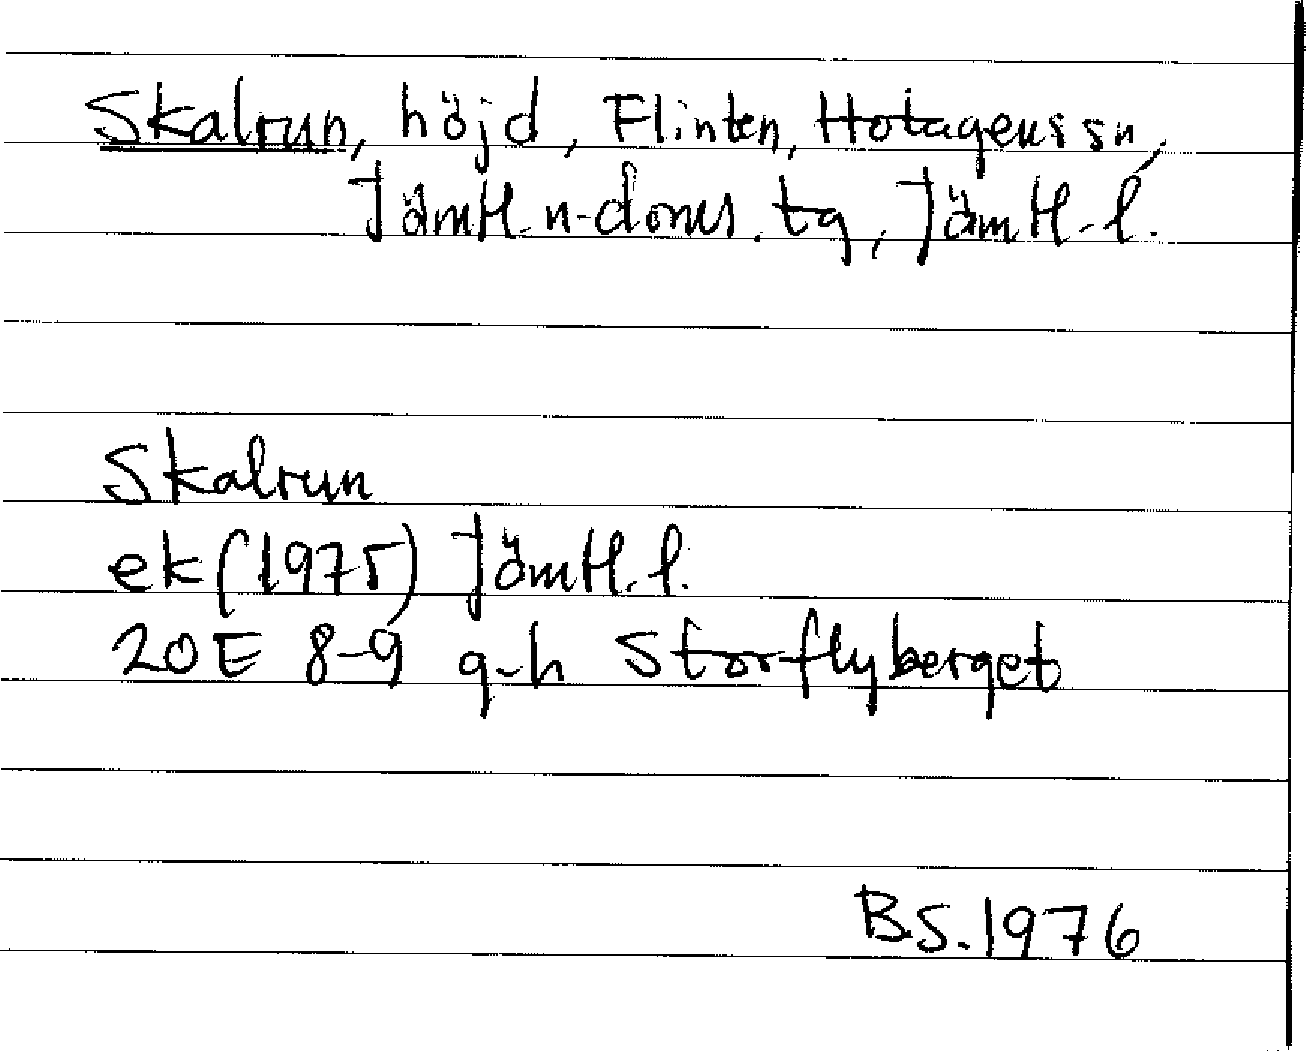 Skalrun, höjd, Flinten, Hotagens sn,
Jämtl. n. doms. tg, Jämtl. l.
Skalrun
ek (1975) Jämtl. l.
20E 8-9 g-h Storflyberget
B.S. 1976